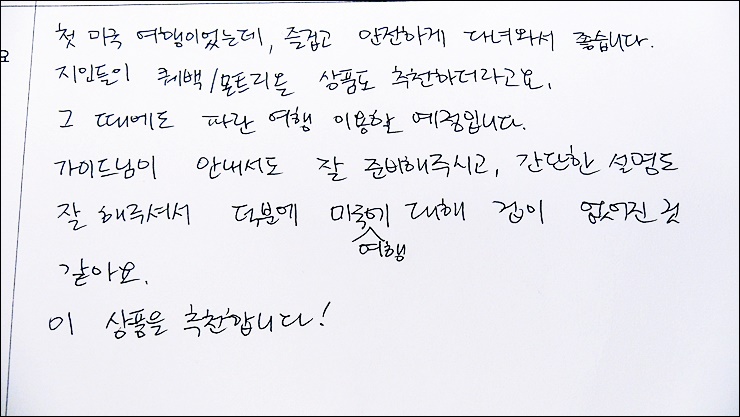 첫 미국 여행이었는데, 즐겁고 안전하게 다녀와서 좋습니다.
지인들이 퀘백/몬트리올 상품도 추천하더라고요.
그 때에도 파란 여행 이용할 예정입니다.
가이드님이 안내서도 잘 준비해주시고, 간단한 설명도
잘 해주셔서 덕분에 미국에 대해 겁이 없어진 것
여행
같아요.
이 상품을 추천합니다!